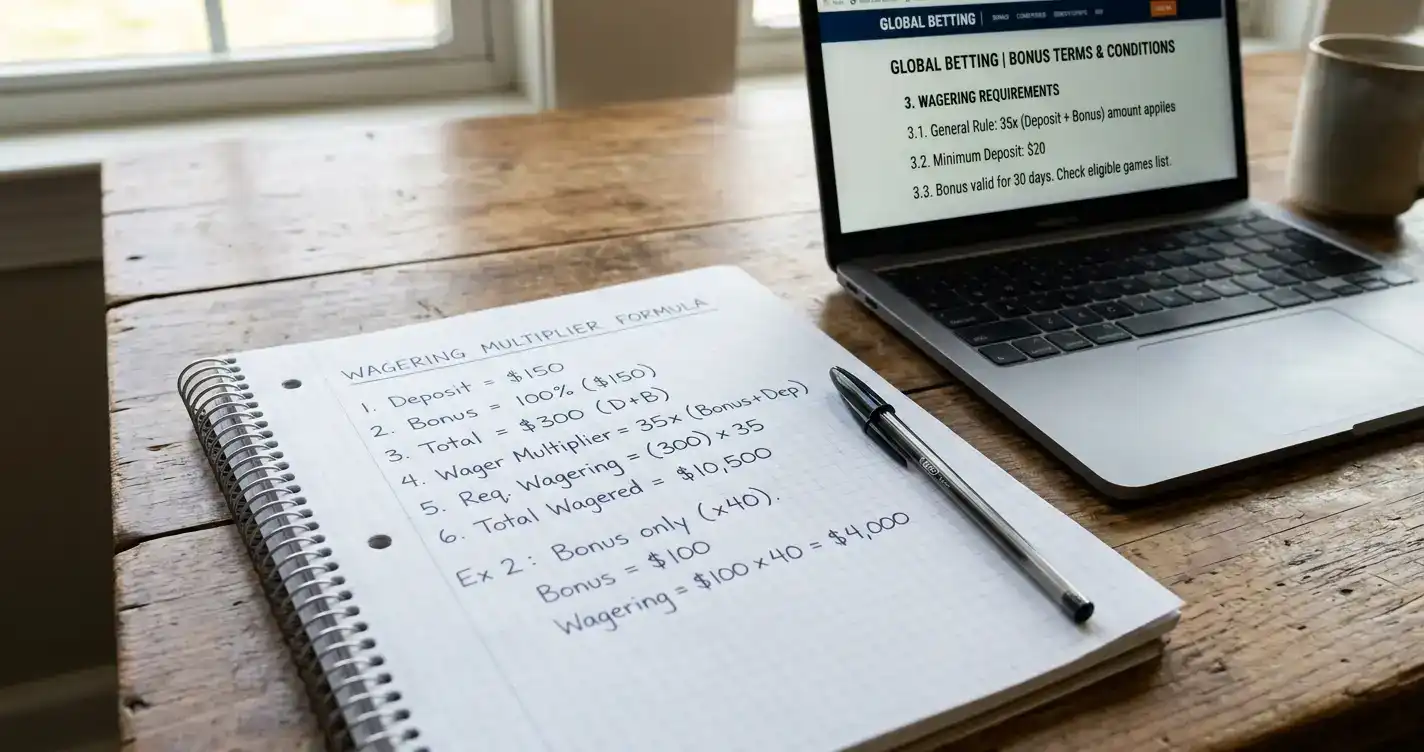 GLOBAL BETTING
GLOBAL BETTING | BONUS TERMS & CONDITIONS
3. WAGERING REQUIREMENTS
3.1. General Rule: 35x (Deposit + Bonus) amount applies
3.2. Minimum Deposit: $20
3.3. Bonus valid for 30 days. Check eligible games list.
WAGERING MULTIPLIER FORMULA
1. Deposit = $150
2. Bonus = 100% ($150)
3. Total = $300 (D+B)
4. Wager Multiplier = 35x (Bonus+Dep)
5. Req. Wagering = (300) x 35
6. Total Wagered = $10,500
Ex 2: Bonus only (x40).
Bonus = $100
Wagering = $100 x 40 = $4,000